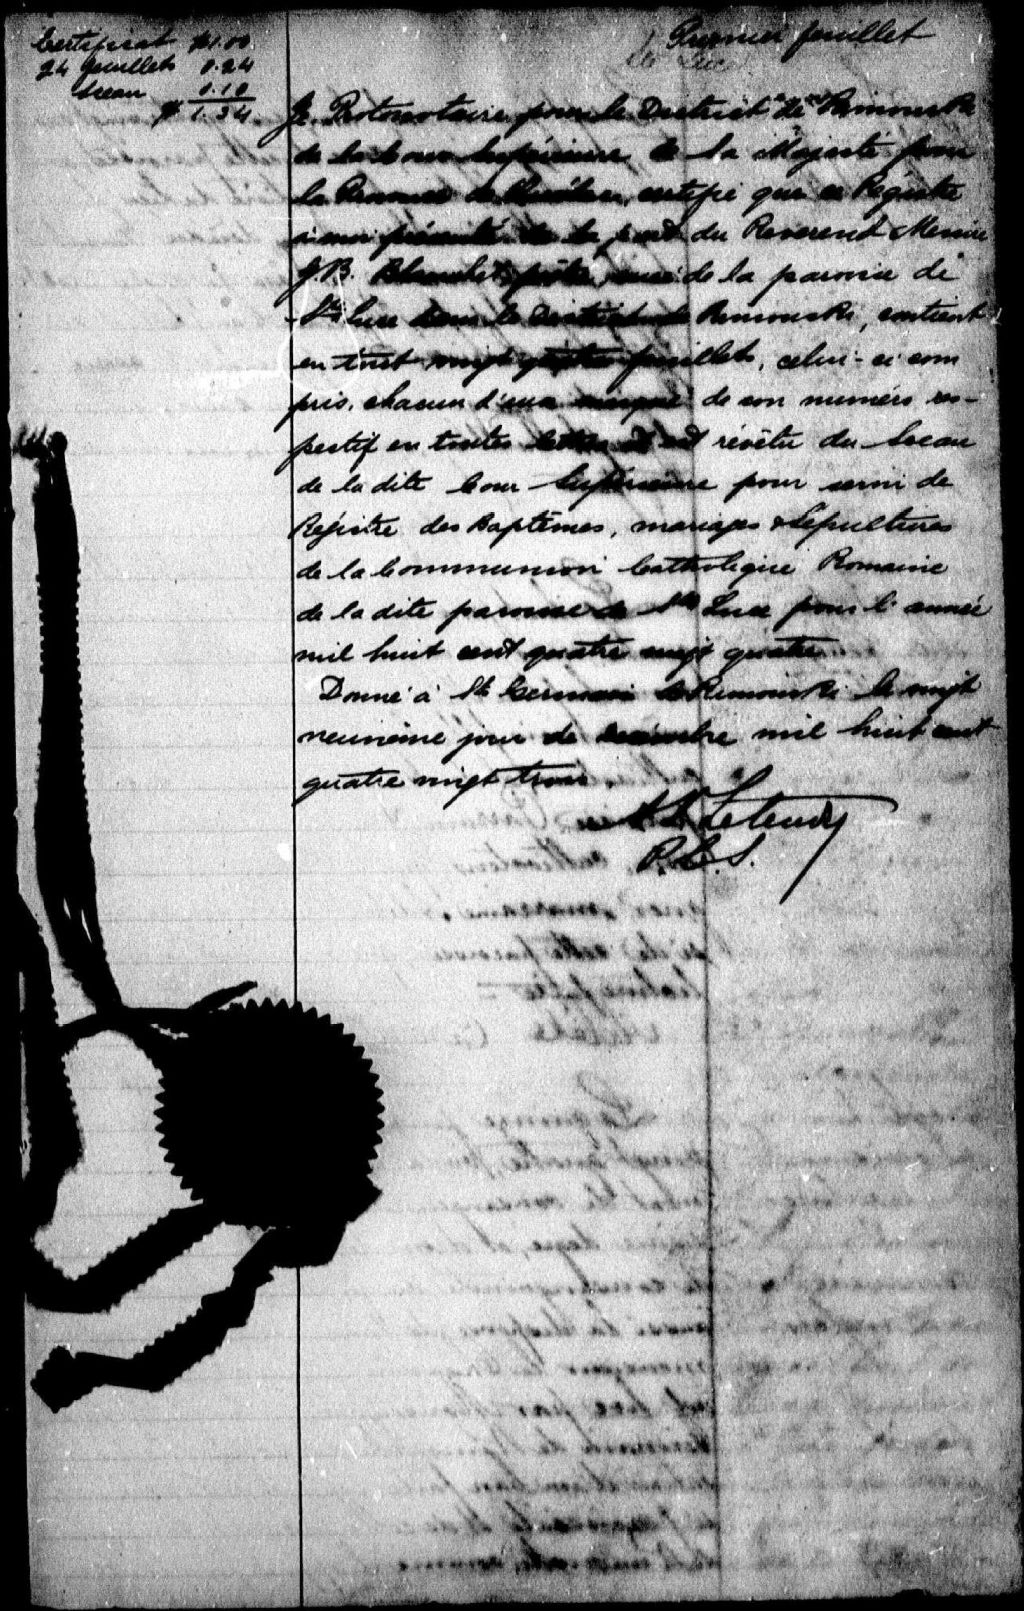 Certificat $1.00
24 feuillets 0.24
Sceau 0.10
$ 1.34
Premier feuillet
Ste Luce
Je, Protonotaire pour le District de Rimouski
de la Cour Supérieure de Sa Majesté pour
la Province de Québec, certifie que ce Régistre
à moi présenté de la part du Reverend Messire
J. B. Blanchet, prêtre, curé de la paroisse de
Ste Luce dans le District de Rimouski, contient
en tout vingt quatre feuillets, celui-ci com
pris, chacun d'eux marqué de son numéro res-
pectif en toutes lettres et est révêtu du Sceau
de la dite Cour Supérieure pour servir de
Régistre des Baptêmes, mariages & Sépultures
de la Communion Catholique Romaine
de la dite paroisse de Ste Luce pour l'année
mil huit cent quatre vingt quatre
Donné à St Germain de Rimouski le vingt
neuvième jour de décembre mil huit cent
quatre vingt trois
Letendre
P.C.S.